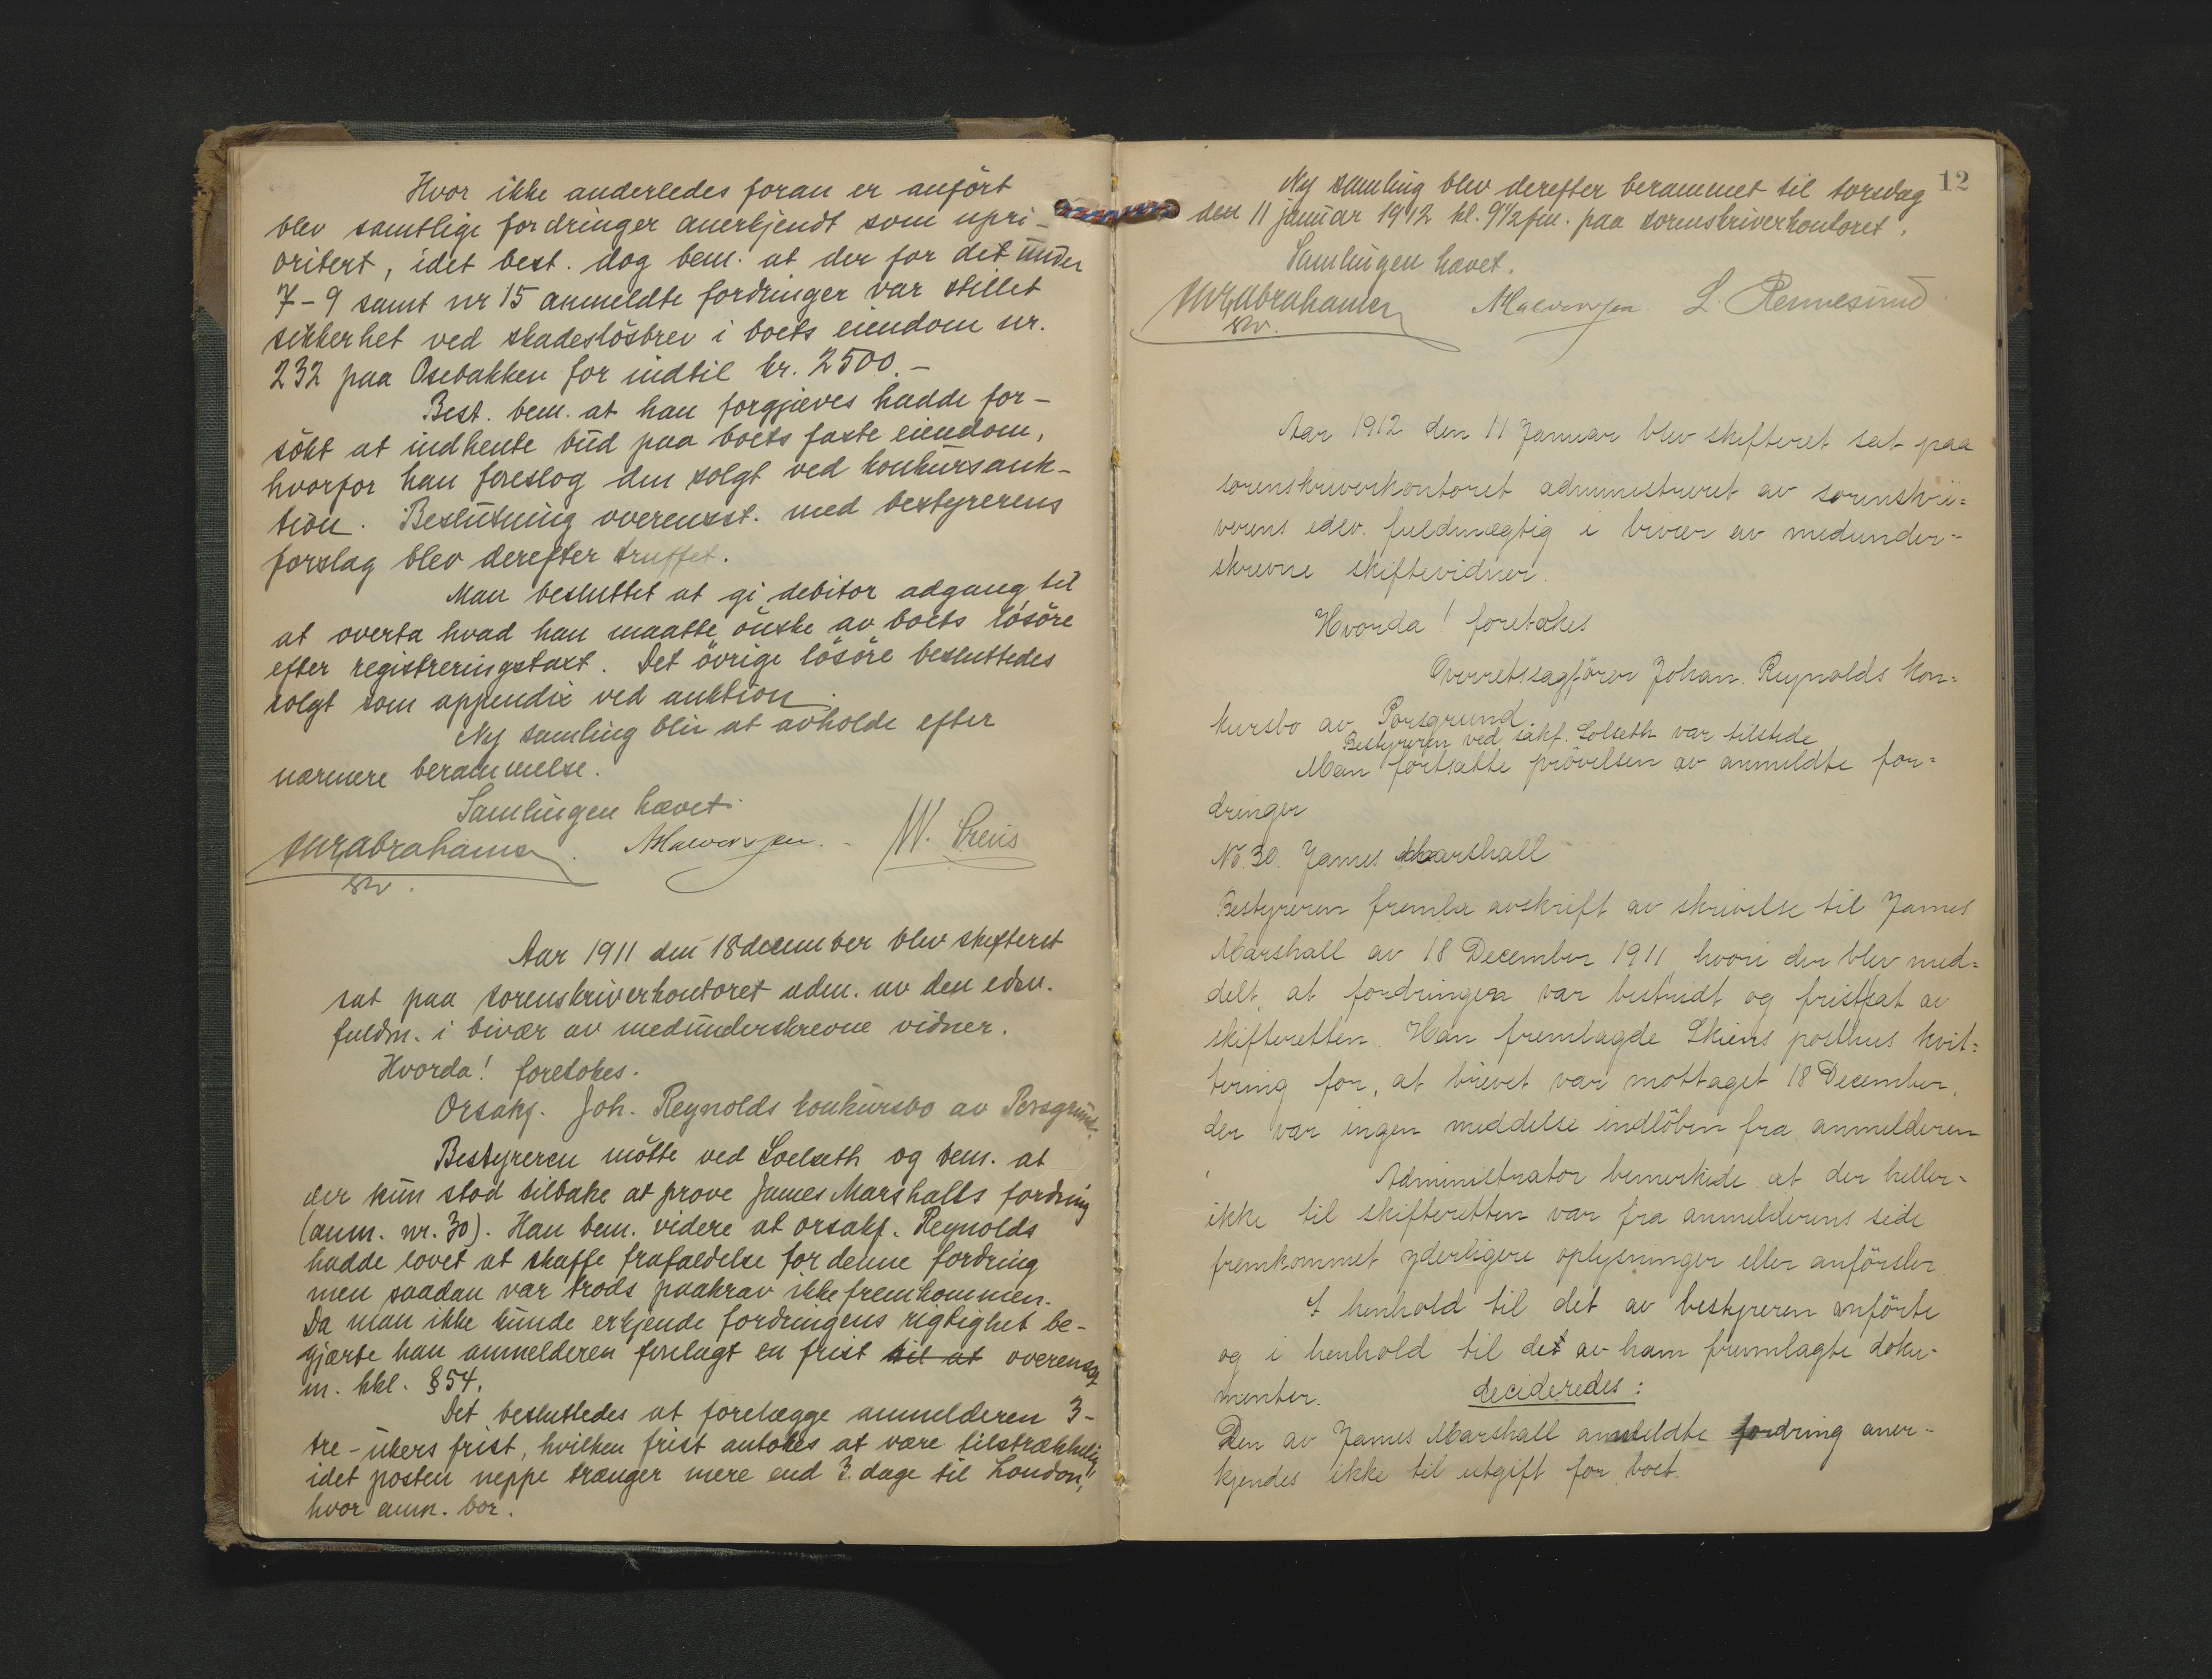 Hvor ikke anderledes foran er anført
blev samtlige fordringer anerkjendt som upri-
oritert, idet best. dog bem. at der for det under
7-9 samt nr 15 anmeldte fordringer var stillet
sikkerhet ved skadesløsbrev i boets eiendom nr.
232 paa Osebakken for indtil kr. 2500.-
Best. bem. at han forgjæves hadde for-
søkt at indhente bud paa boets faste eiendom,
hvorfor han foreslog den solgt ved konkursauk-
tion. Beslutning overensst. med bestyrerens
forslag blev derefter truffet.
Man besluttet at gi debitor adgang til
at overta hvad han maatte ønske av boets løsøre
efter registreringstaxt. Det øvrige løsøre besluttedes
solgt som appendix ved auktion.
Ny samling blir at avholde efter
nærmere berammelse.
Samlingen hævet.
Abrahamsen. Halvorsen. W.
Aar 1911 den 18 december blev skifteret
sat paa sorenskriverkontoret adm. av den edsv.
fuldm. i bivær av medunderskrevne vidner.
Hvorda! foretokes.
Orsakf. Joh. Reynolds konkursbo av Porsgrund.
Bestyreren møtte ved Solseth og bem. at
der kun stod tilbake at prøve James Marshalls fordring
(anm. nr. 30). Han bem. videre at orsakf. Reynolds
hadde lovet at skaffe frafaldelse for denne fordring
men saadan var trods paakrav ikke fremkommen.
Da man ikke kunde erkjende fordringens rigtighet be-
gjærte han anmelderen forelagt en frist til at overensst.
m. kkl. § 54.
Det besluttedes at forelægge anmelderen 3-
tre-ukers frist, hvilken frist antokes at være tilstrækkelig
idet posten neppe trænger mere end 3 dage til London,
hvor anm. bor.
12
Ny samling blev derefter berammet til torsdag
den 11 januar 1912 kl. 9 1/2 fm. paa sorenskriverkontoret.
Samlingen hævet.
Abrahamsen Halvorsen L. Rennesund
Aar 1912 den 11 Januar blev skifteret sat paa
sorenskriverkontoret administreret av sorenskri=
verens edsv. fuldmægtig i bivær av medunder=
skrevne skiftevidner.
Hvorda! foretokes
Overretssagfører Johan Reynolds kon=
kursbo av Porsgrund.
Bestyreren ved sakf. Solseth var tilstede
Man fortsatte prøvelsen av anmeldte for=
dringer
No 30. James Marshall
Bestyreren fremla avskrift av skrivelse til James
Marshall av 18 December 1911, hvori der blev med=
delt, at fordringen var bestridt og fristsat av
skifteretten. Han fremlagde Skiens posthus kvit=
tering for, at brevet var mottaget 18 December,
der var ingen meddelse indløben fra anmelderen
Administrator bemerkede at der heller=
ikke til skifteretten var fra anmelderens side
fremkommet yderligere oplysninger eller anførsler
I henhold til det av bestyreren anførte
og i henhold til det av ham fremlagte doku-
menter. decideredes:
Den av James Marshall anmeldte fordring aner-
kjendes ikke til utgift for boet.